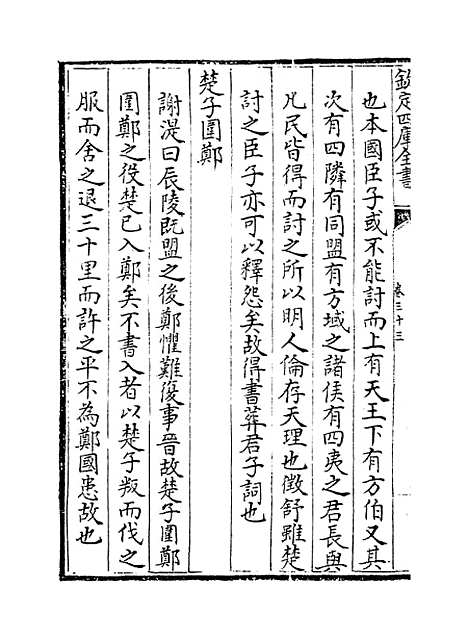 欽定四庫全書
卷三十三
也本國臣子或不能討而上有天王下有方伯又其
次有四隣有同盟有方域之諸侯有四夷之君長與
凡民皆得而討之所以明人倫存天理也徵舒雖楚
討之臣子亦可以釋怨矣故得書葬君子詞也
楚子圍鄭
謝湜曰辰陵既盟之後鄭懼難復事晉故楚子圍鄭
圍鄭之役楚已入鄭矣不書入者以楚子叛而伐之
服而舍之退三十里而許之平不為鄭國患故也